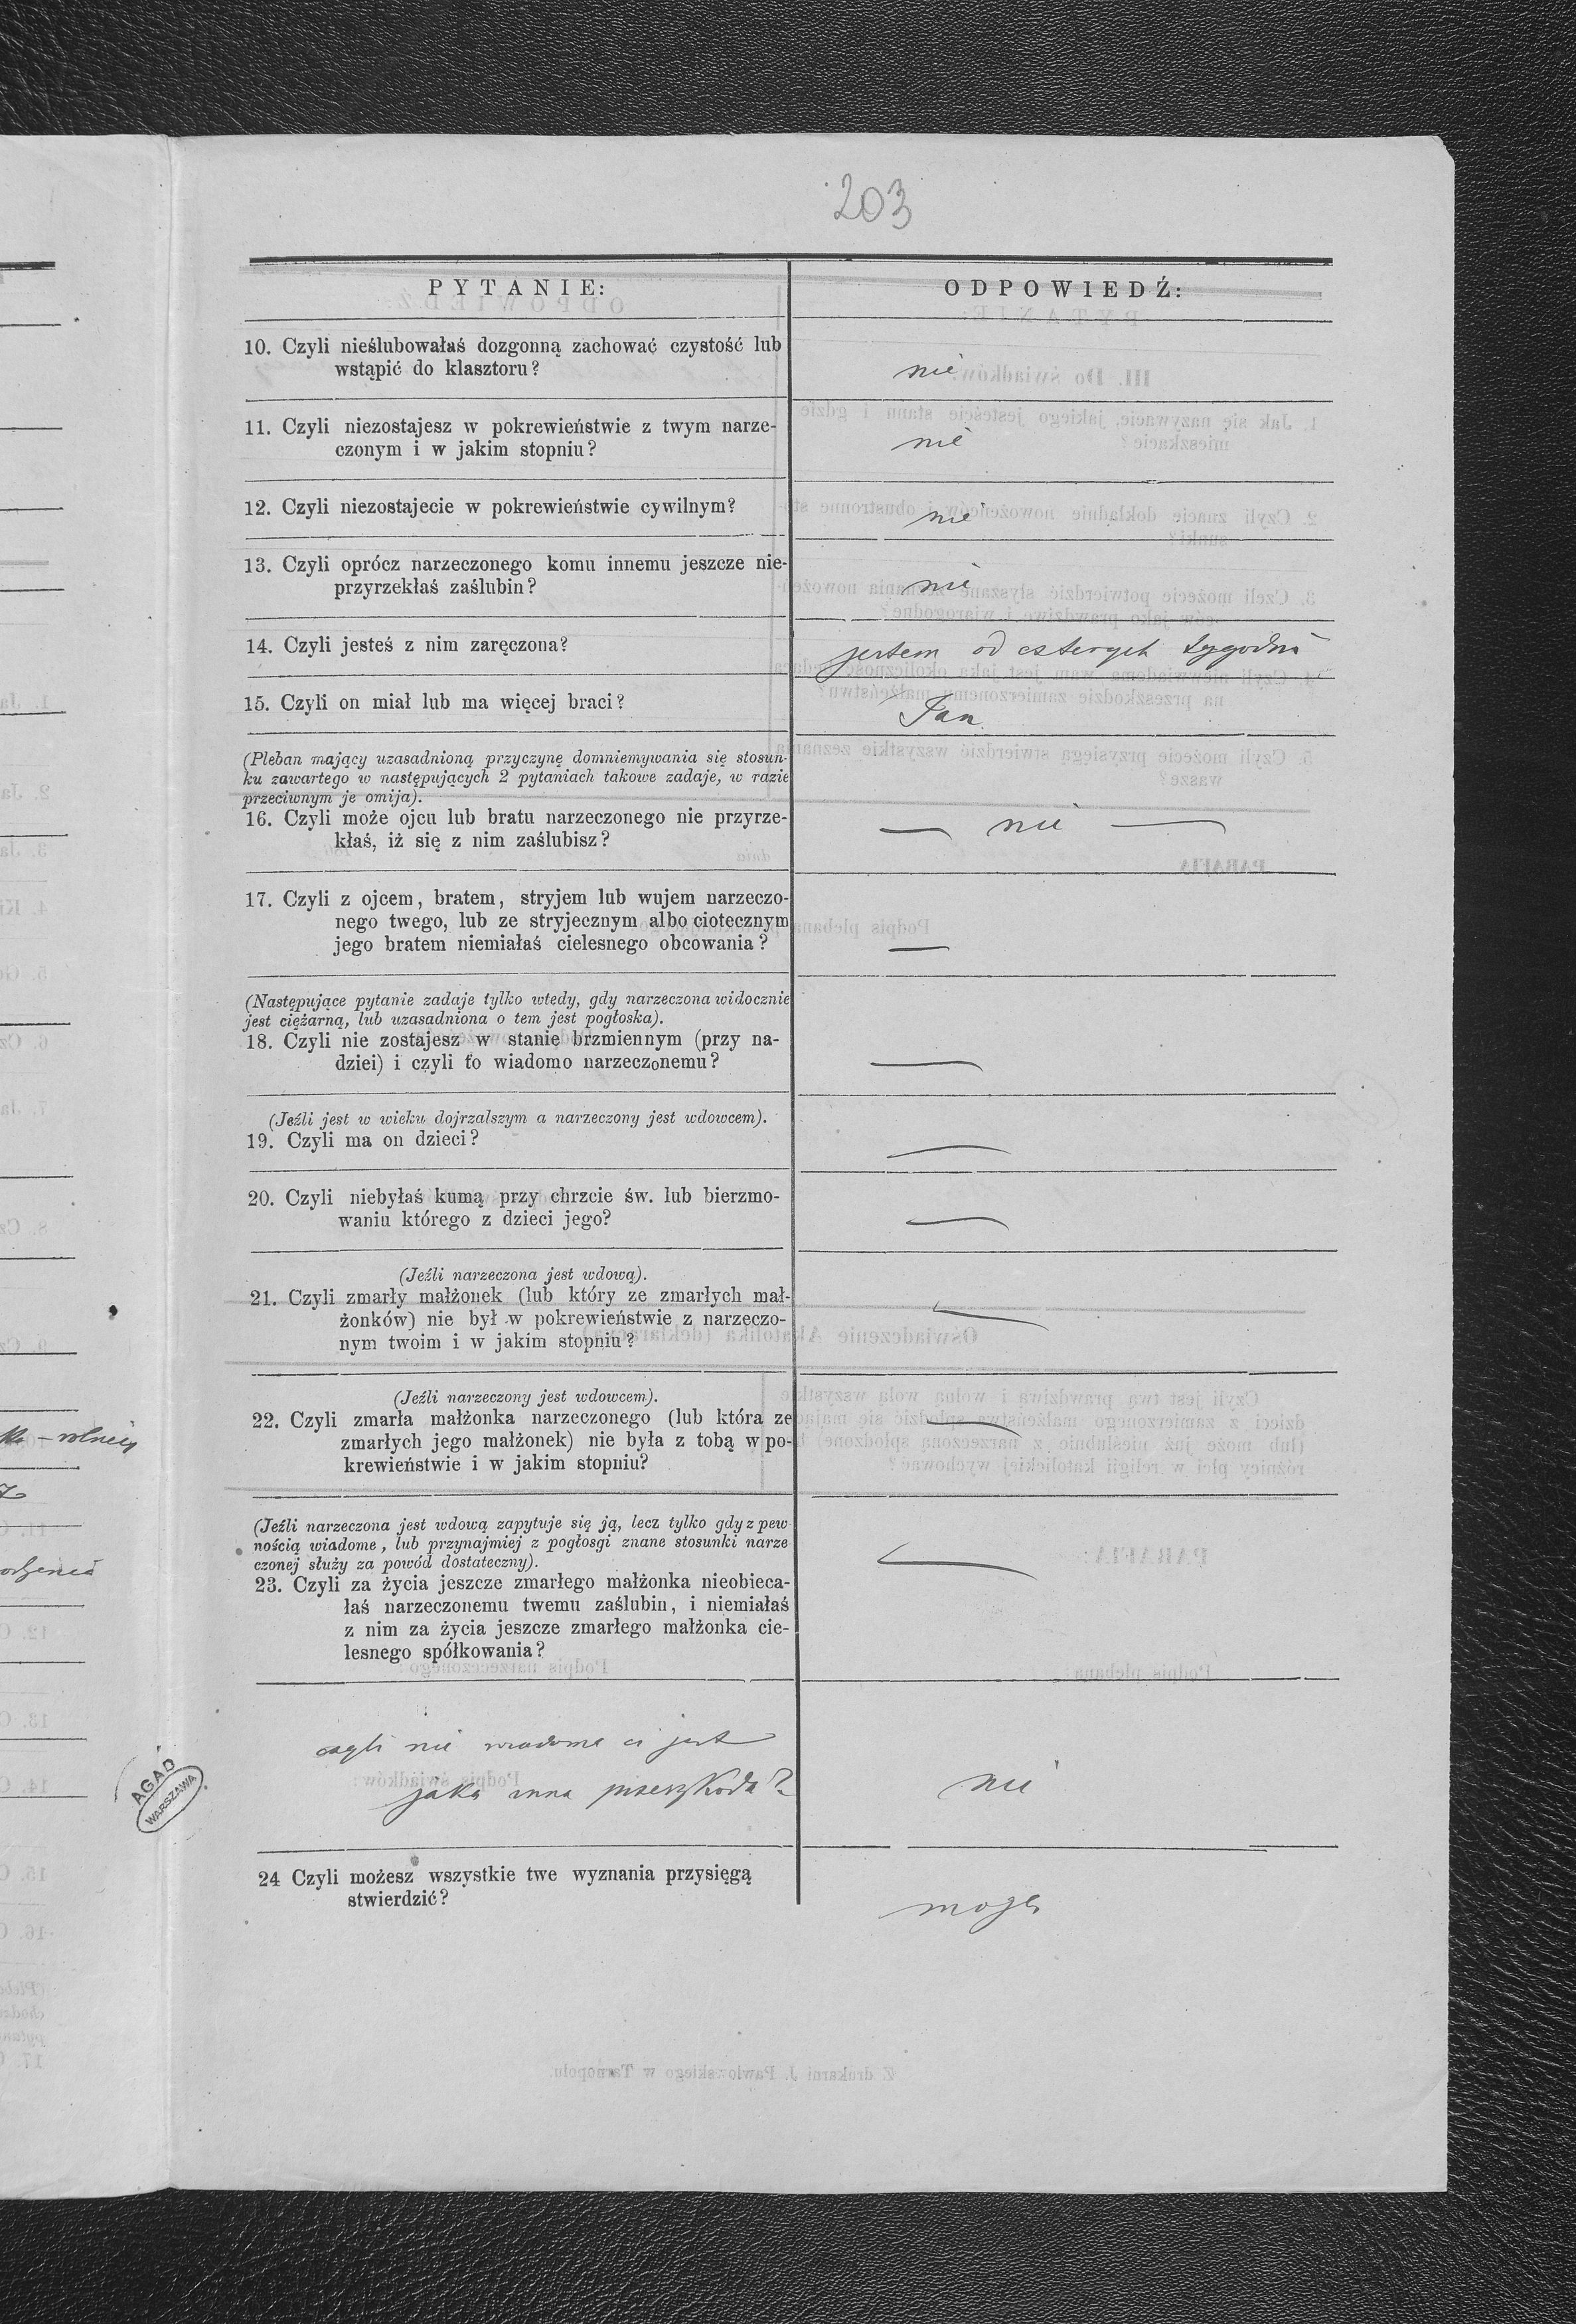 203
PYTANIE:
ODPOWIEDŹ:
10. Czyli nieślubowałaś dozgonną zachować czystość lub
wstąpić do klasztoru?
nie
11. Czyli niezostajesz w pokrewieństwie z twym narze-
czonym i w jakim stopniu?
nie
12. Czyli niezostajecie w pokrewieństwie cywilnym?
nie
13. Czyli oprócz narzeczonego komu innemu jeszcze nie-
przyrzekłaś zaślubin?
nie
14. Czyli jesteś z nim zaręczona?
jestem od czterych tygodni
15. Czyli on miał lub ma więcej braci?
Jan
(Pleban mający uzasadnioną przyczynę domniemywania się stosun-
ku zawartego w następujących 2 pytaniach takowe zadaje, w razie
przeciwnym je omija).
16. Czyli może ojcu lub bratu narzeczonego nie przyrze-
kłaś, iż się z nim zaślubisz?
— nie —
17. Czyli z ojcem, bratem, stryjem lub wujem narzeczo-
nego twego, lub ze stryjecznym albo ciotecznym
jego bratem niemiałaś cielesnego obcowania?
—
(Następujące pytanie zadaje tylko wtedy, gdy narzeczona widocznie
jest ciężarną, lub uzasadniona o tem jest pogłoska).
18. Czyli nie zostajesz w stanie brzmiennym (przy na-
dziei) i czyli to wiadomo narzeczonemu?
—
(Jeźli jest w wieku dojrzalszym a narzeczony jest wdowcem).
19. Czyli ma on dzieci?
—
20. Czyli niebyłaś kumą przy chrzcie św. lub bierzmo-
waniu którego z dzieci jego?
—
(Jeźli narzeczona jest wdową).
21. Czyli zmarły małżonek (lub który ze zmarłych mał-
żonków) nie był w pokrewieństwie z narzeczo-
nym twoim i w jakim stopniu?
—
(Jeźli narzeczony jest wdowcem).
22. Czyli zmarła małżonka narzeczonego (lub która ze
zmarłych jego małżonek) nie była z tobą w po-
krewieństwie i w jakim stopniu?
—
(Jeźli narzeczona jest wdową zapytuje się ją, lecz tylko gdy z pew
nością wiadome, lub przynajmiej z pogłosgi znane stosunki narze
czonej służy za powód dostateczny).
23. Czyli za życia jeszcze zmarłego małżonka nieobieca-
łaś narzeczonemu twemu zaślubin, i niemiałaś
z nim za życia jeszcze zmarłego małżonka cie-
lesnego spółkowania?
—
czyli nie wiadome ci jest
jaka inna przeszkoda?
nie
24 Czyli możesz wszystkie twe wyznania przysięgą
stwierdzić?
mogę
AGAD
WARSZAWA